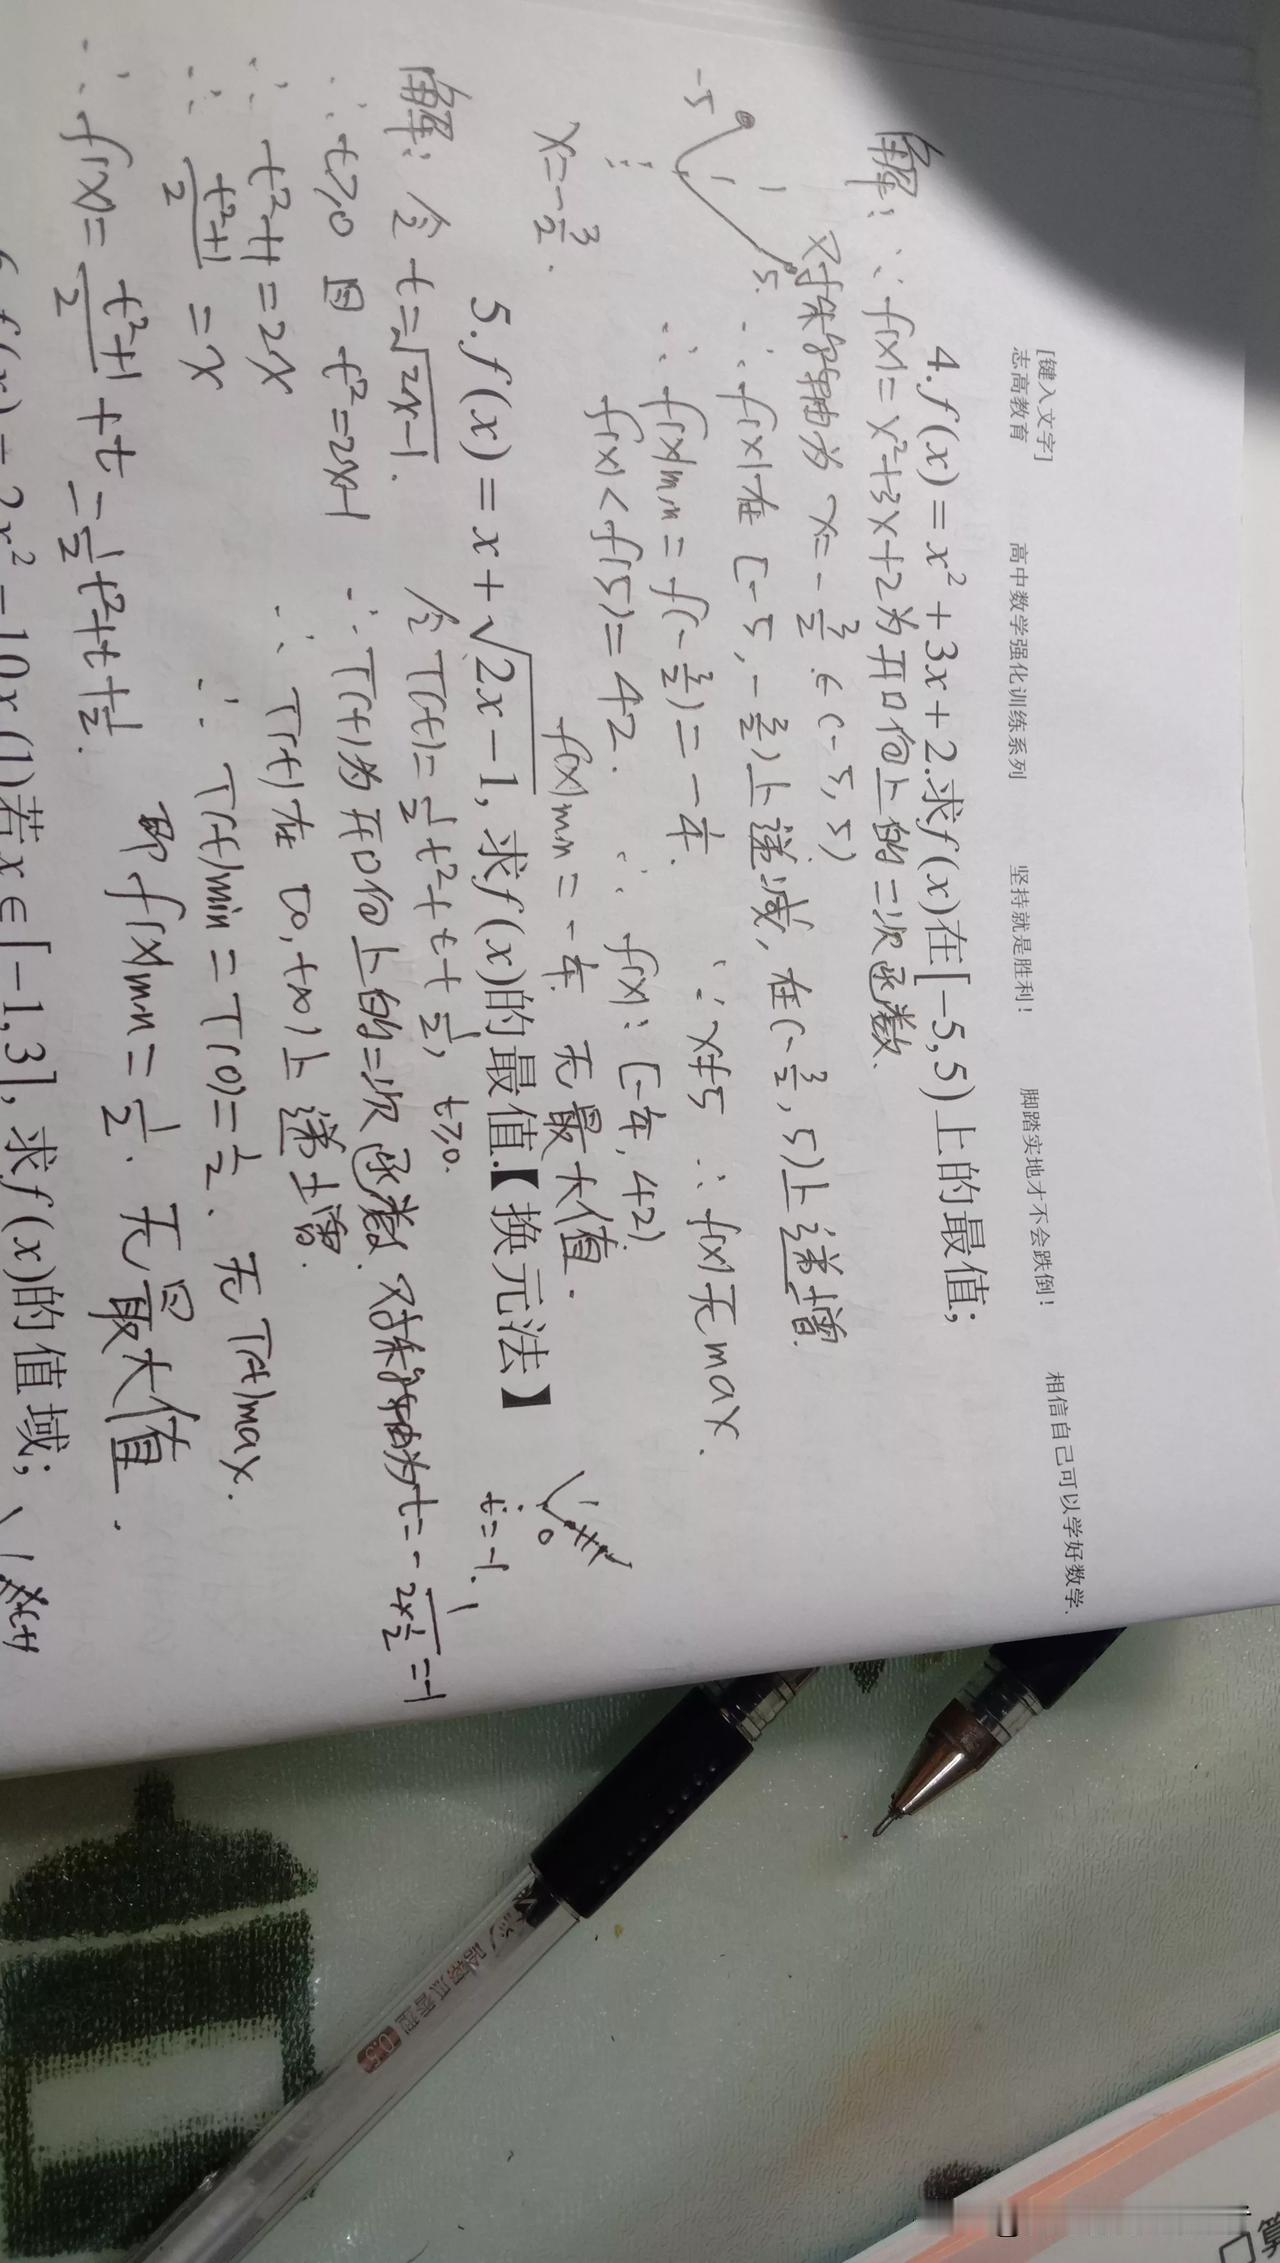 [键入文字]
志高教育 高中数学强化训练系列 坚持就是胜利! 脚踏实地才不会跌倒! 相信自己可以学好数学.
4.f(x)=x²+3x+2.求f(x)在[-5,5)上的最值;
解:∵f(x)=x²+3x+2为开口向上的二次函数.
对称轴为x=-3/2∈(-5,5)
∴f(x)在[-5,-3/2)上递减,在(-3/2,5)上递增
-5
5.
∴f(x)min=f(-3/2)=-1/4.
∵x≠5 ∴f(x)无max.
f(x)<f(5)=42.
∴f(x):[-1/4,42)
x=-3/2.
f(x)min=-1/4 无最大值.
5.f(x)=x+√(2x-1),求f(x)的最值.【换元法】
解:令t=√(2x-1).
令T(t)=1/2t²+t+1/2, t≥0.
t=-1.
0
∴t≥0 且t²=2x-1
∴T(t)为开口向上的二次函数.对称轴为t=-1/(2×1/2)=-1
∴t²+1=2x
∴T(t)在[0,+∞)上递增.
∴(t²+1)/2=x
∴T(t)min=T(0)=1/2. 无T(t)max.
∴f(x)=(t²+1)/2+t=1/2t²+t+1/2.
即f(x)min=1/2. 无最大值.
6.f(x)=2x²-10x(1)若x∈[-1,3],求f(x)的值域;
0.5
算